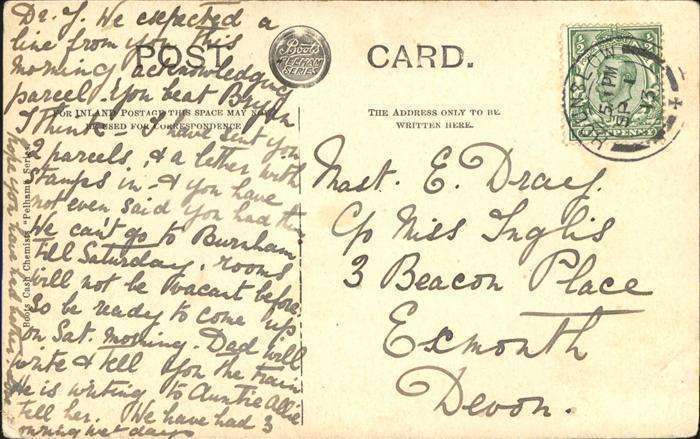 Dr. J. We expected a
line from you this
morning acknowledging
parcel. You beat Bryan
I think. I have sent you
2 parcels, & a letter with
stamps in & you have
not even said you had them
We can't go to Burnham
till Saturday, rooms
will not be vacant before
So be ready to come up
on Sat. morning. Dad will
write & tell you the train
He is writing to Auntie Allie
tell her. We have had 3
wet days
hope you have had better
POST CARD.
Boots
PELHAM
SERIES
FOR INLAND POSTAGE THIS SPACE MAY NOW
BE USED FOR CORRESPONDENCE
THE ADDRESS ONLY TO BE
WRITTEN HERE.
Boots Cash Chemists "Pelham" Series
HOUNSLOW
5 PM
SP 1
13
½ ½
PENNY
Mast. E. Dray.
C/o Miss Inglis
3 Beacon Place
Exmouth
Devon.